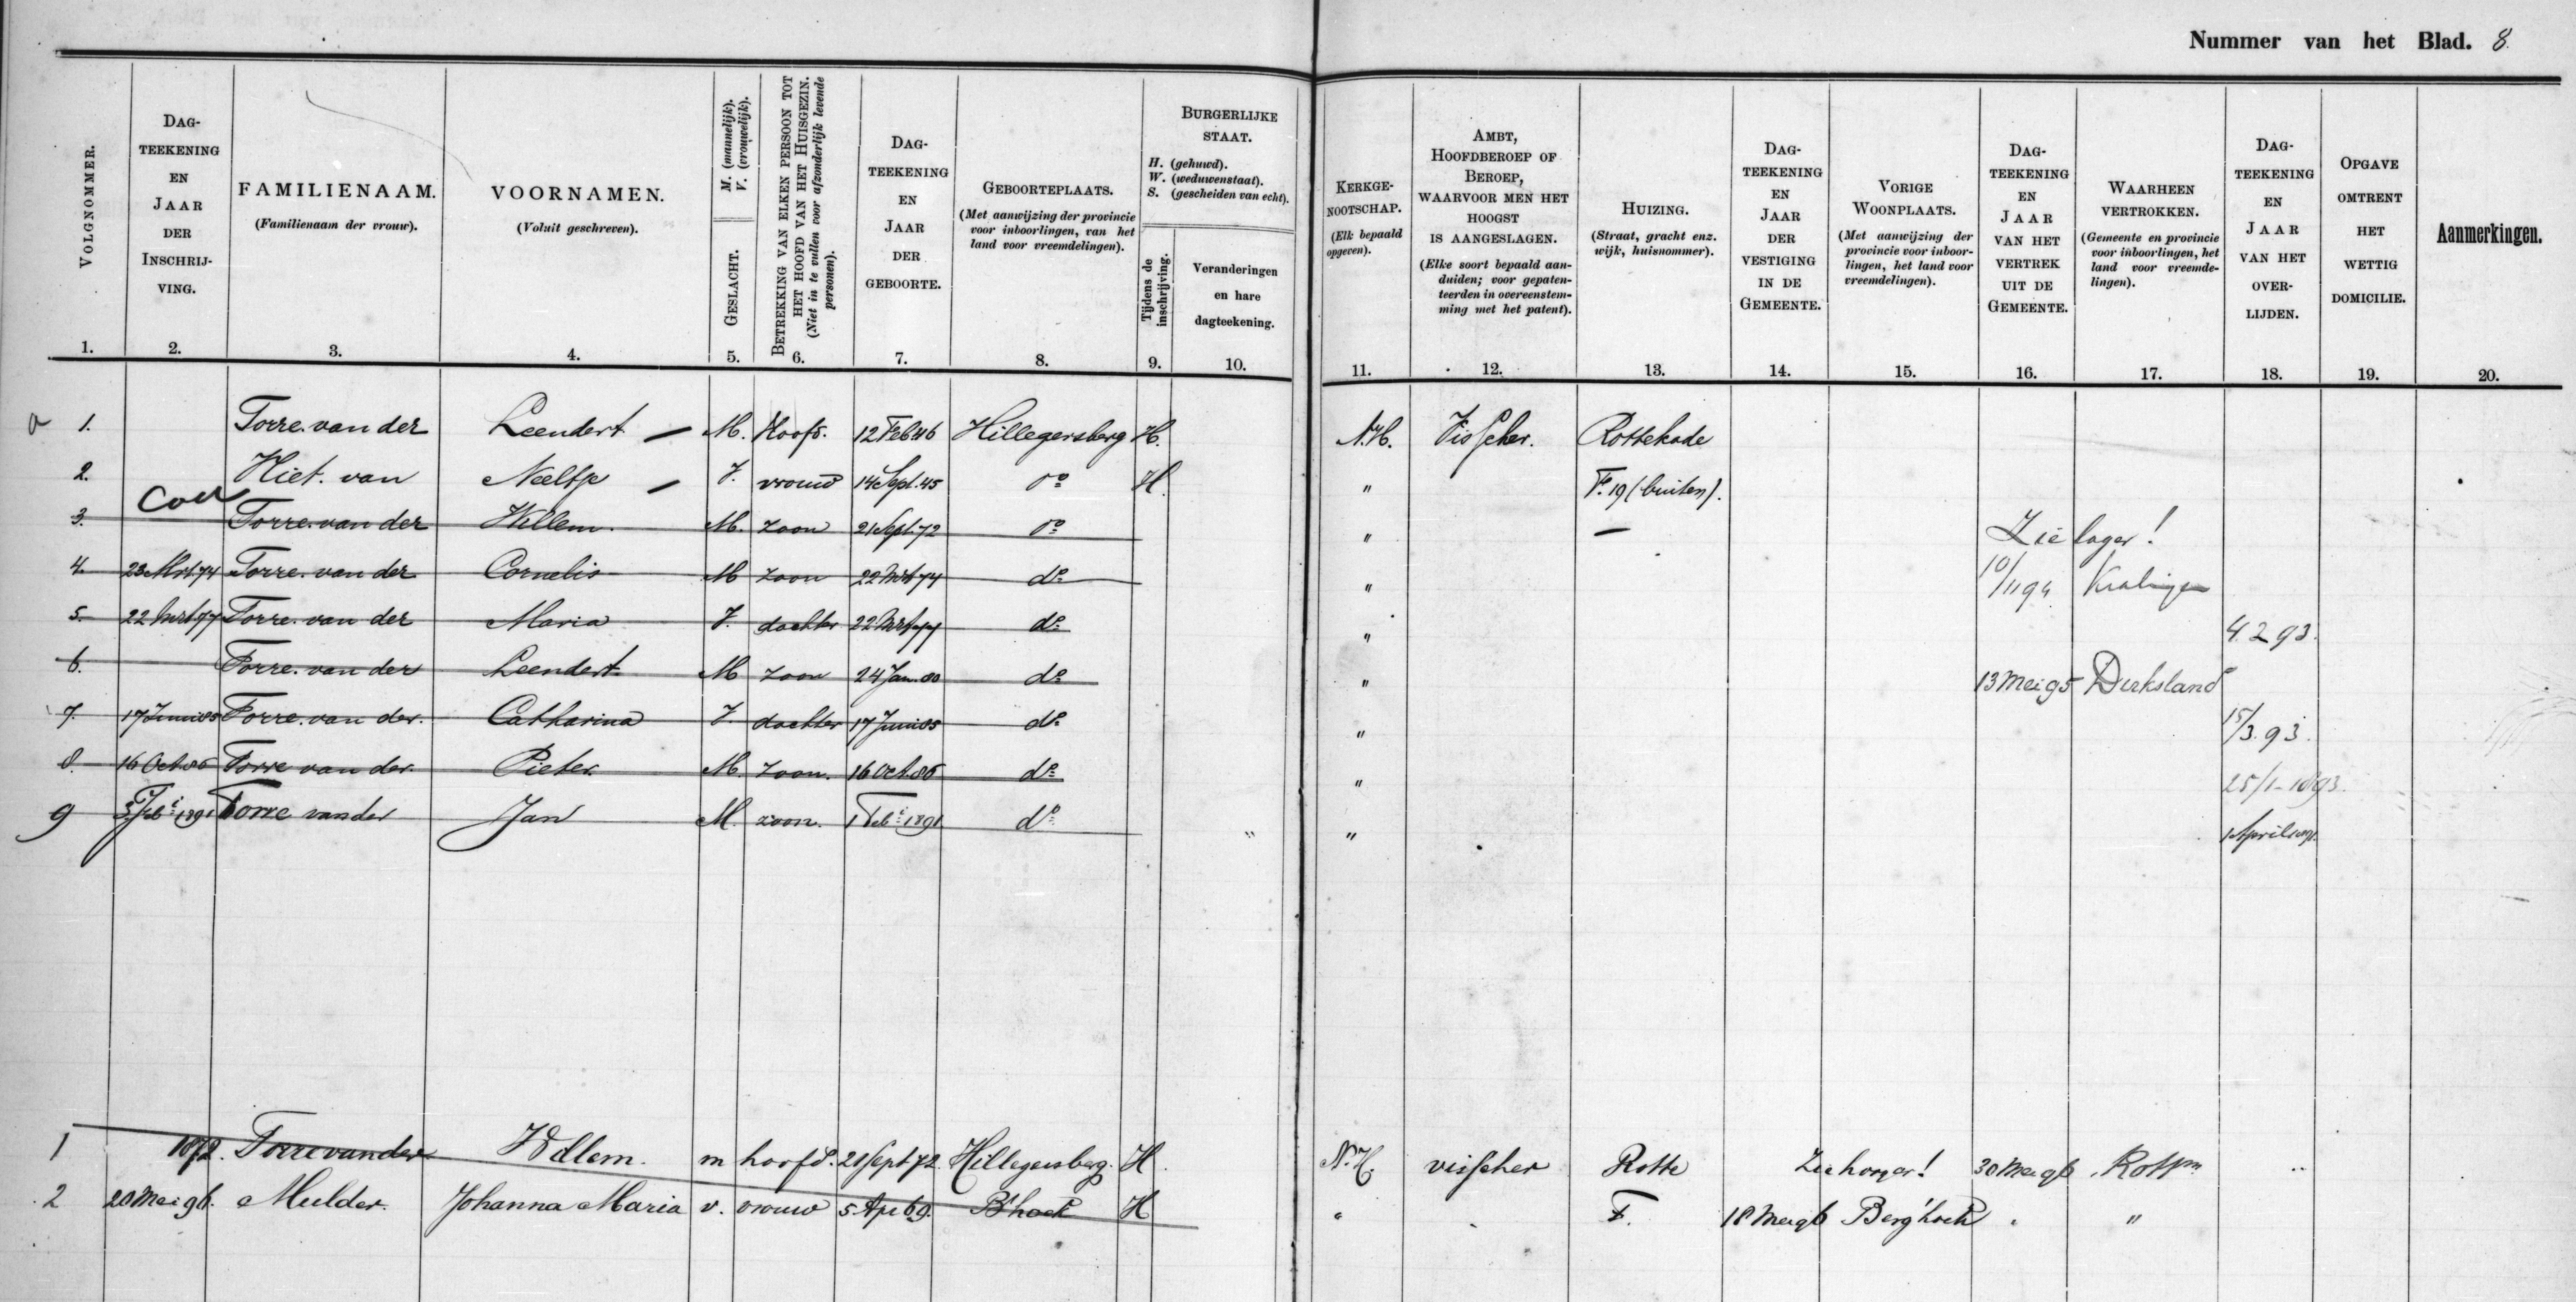 Nummer van het Blad. 8.
VOLGNOMMER. 1.
DAG-TEEKENING EN JAAR DER INSCHRIJ-VING. 2.
FAMILIENAAM. (Familienaam der vrouw). 3.
VOORNAMEN. (Voluit geschreven). 4.
GESLACHT. M. (mannelijk). V. (vrouwelijk). 5.
BETREKKING VAN ELKEN PERSOON TOT HET HOOFD VAN HET HUISGEZIN. (Niet in te vullen voor afzonderlijk levende personen). 6.
DAG-TEEKENING EN JAAR DER GEBOORTE. 7.
GEBOORTEPLAATS. (Met aanwijzing der provincie voor inboorlingen, van het land voor vreemdelingen). 8.
BURGERLIJKE STAAT.
H. (gehuwd).
W. (weduwenstaat).
S. (gescheiden van echt).
Tijdens de inschrijving. 9.
Veranderingen en hare dagteekening. 10.
KERKGE-NOOTSCHAP. (Elk bepaald opgeven). 11.
AMBT, HOOFDBEROEP OF BEROEP, WAARVOOR MEN HET HOOGST IS AANGESLAGEN. (Elke soort bepaald aan-duiden; voor gepaten-teerden in overeenstem-ming met het patent). 12.
HUIZING. (Straat, gracht enz. wijk, huisnommer). 13.
DAG-TEEKENING EN JAAR DER VESTIGING IN DE GEMEENTE. 14.
VORIGE WOONPLAATS. (Met aanwijzing der provincie voor inboor-lingen, het land voor vreemdelingen). 15.
DAG-TEEKENING EN JAAR VAN HET VERTREK UIT DE GEMEENTE. 16.
WAARHEEN VERTROKKEN. (Gemeente en provincie voor inboorlingen, het land voor vreemde-lingen). 17.
DAG-TEEKENING EN JAAR VAN HET OVER-LIJDEN. 18.
OPGAVE OMTRENT HET WETTIG DOMICILIE. 19.
Aanmerkingen. 20.
a 1. Torre. van der Leendert M. Hoofd. 12 Feb 46 Hillegersberg H. N.H. Visscher. Rottekade
2. Hiet. van Neeltje V. vrouw 14 Sept. 45 do H. " F. 19 (buiten).
3. Torre. van der Willem. M. zoon 21 Sept. 72 do " — Zie lager!
4. 23 Mrt 74 Torre. van der Cornelis M zoon 22 Mrt 74 do " 10/11 94 Kralingen
5. 22 Mrt 77 Torre. van der Maria V. dochter 22 Mrt 77 do " 4. 2 93.
6. Torre. van der Leendert M zoon 24 Jan. 80 do " 13 Mei 95 Dirksland
7. 17 Juni 85 Torre. van der. Catharina V. dochter 17 Juni 85 do " 15/3. 93.
8. 16 Oct. 86 Torre van der. Pieter M. zoon. 16 Oct. 86 do " 25/1-1893.
9 3 Febi 1891 Torre van der Jan M. zoon. 1 Febi 1891 do " " 1 April 1891.
1 1872. Torre van der Willem. m hoofd. 21 Sept 72. Hillegersberg. H. N.H. visscher Rotte Zie hooger! 30 Mei 96 Rottm "
2 20 Mei 96. Mulder. Johanna Maria v. vrouw 5 Apr 69. B'hoek H " F. 18 Mei 96 Berg'hoek " "